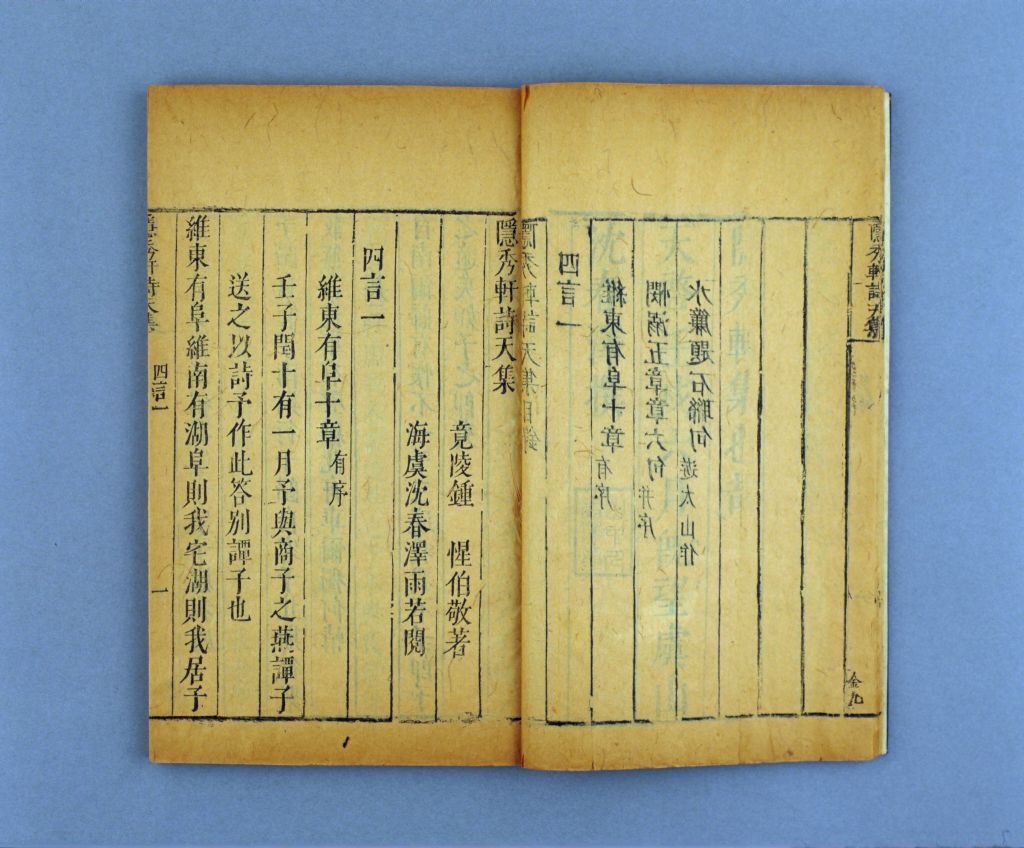 隱秀軒詩天集
金九
隱秀軒詩天集目錄
四言一
維東有阜十章 有序
憫涸五章章六句 并序
水簾題石聯句 遊太山作
隱秀軒詩天集
竟陵鍾 惺伯敬著
海虞沈春澤雨若閱
四言一
維東有阜十章 有序
壬子閏十有一月予與商子之燕譚子
送之以詩予作此答别譚子也
維東有阜維南有湖阜則我宅湖則我居子
隱秀軒詩天集
四言一
一